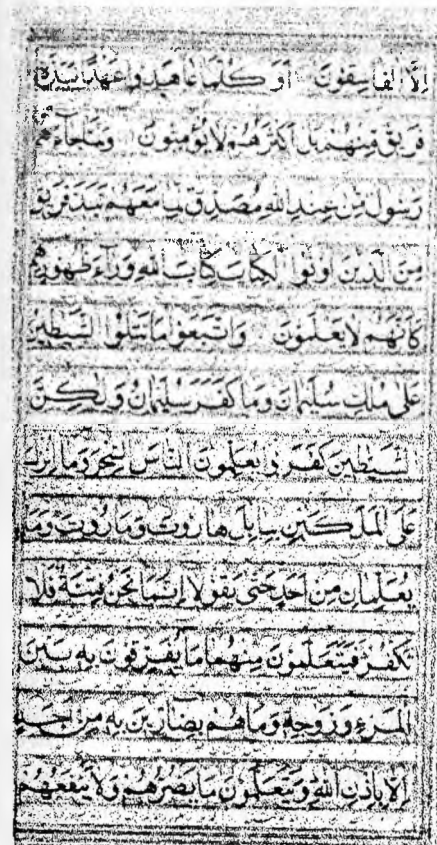 إلا الفاسقون أو كلما عاهدوا عهدا نبذه
فريق منهم بل أكثرهم لا يؤمنون ولما جاءهم
رسول من عند الله مصدق لما معهم نبذ فريق
من الذين أوتوا الكتاب كتاب الله وراء ظهورهم
كأنهم لا يعلمون واتبعوا ما تتلوا الشيطين
على ملك سليمان وما كفر سليمان ولكن
الشيطين كفروا يعلمون الناس السحر وما أنزل
على الملكين ببابل هاروت وماروت وما
يعلمان من أحد حتى يقولا إنما نحن فتنة فلا
تكفر فيتعلمون منهما ما يفرقون به بين
المرء وزوجه وما هم بضارين به من أحد
إلا بإذن الله ويتعلمون ما يضرهم ولا ينفعهم